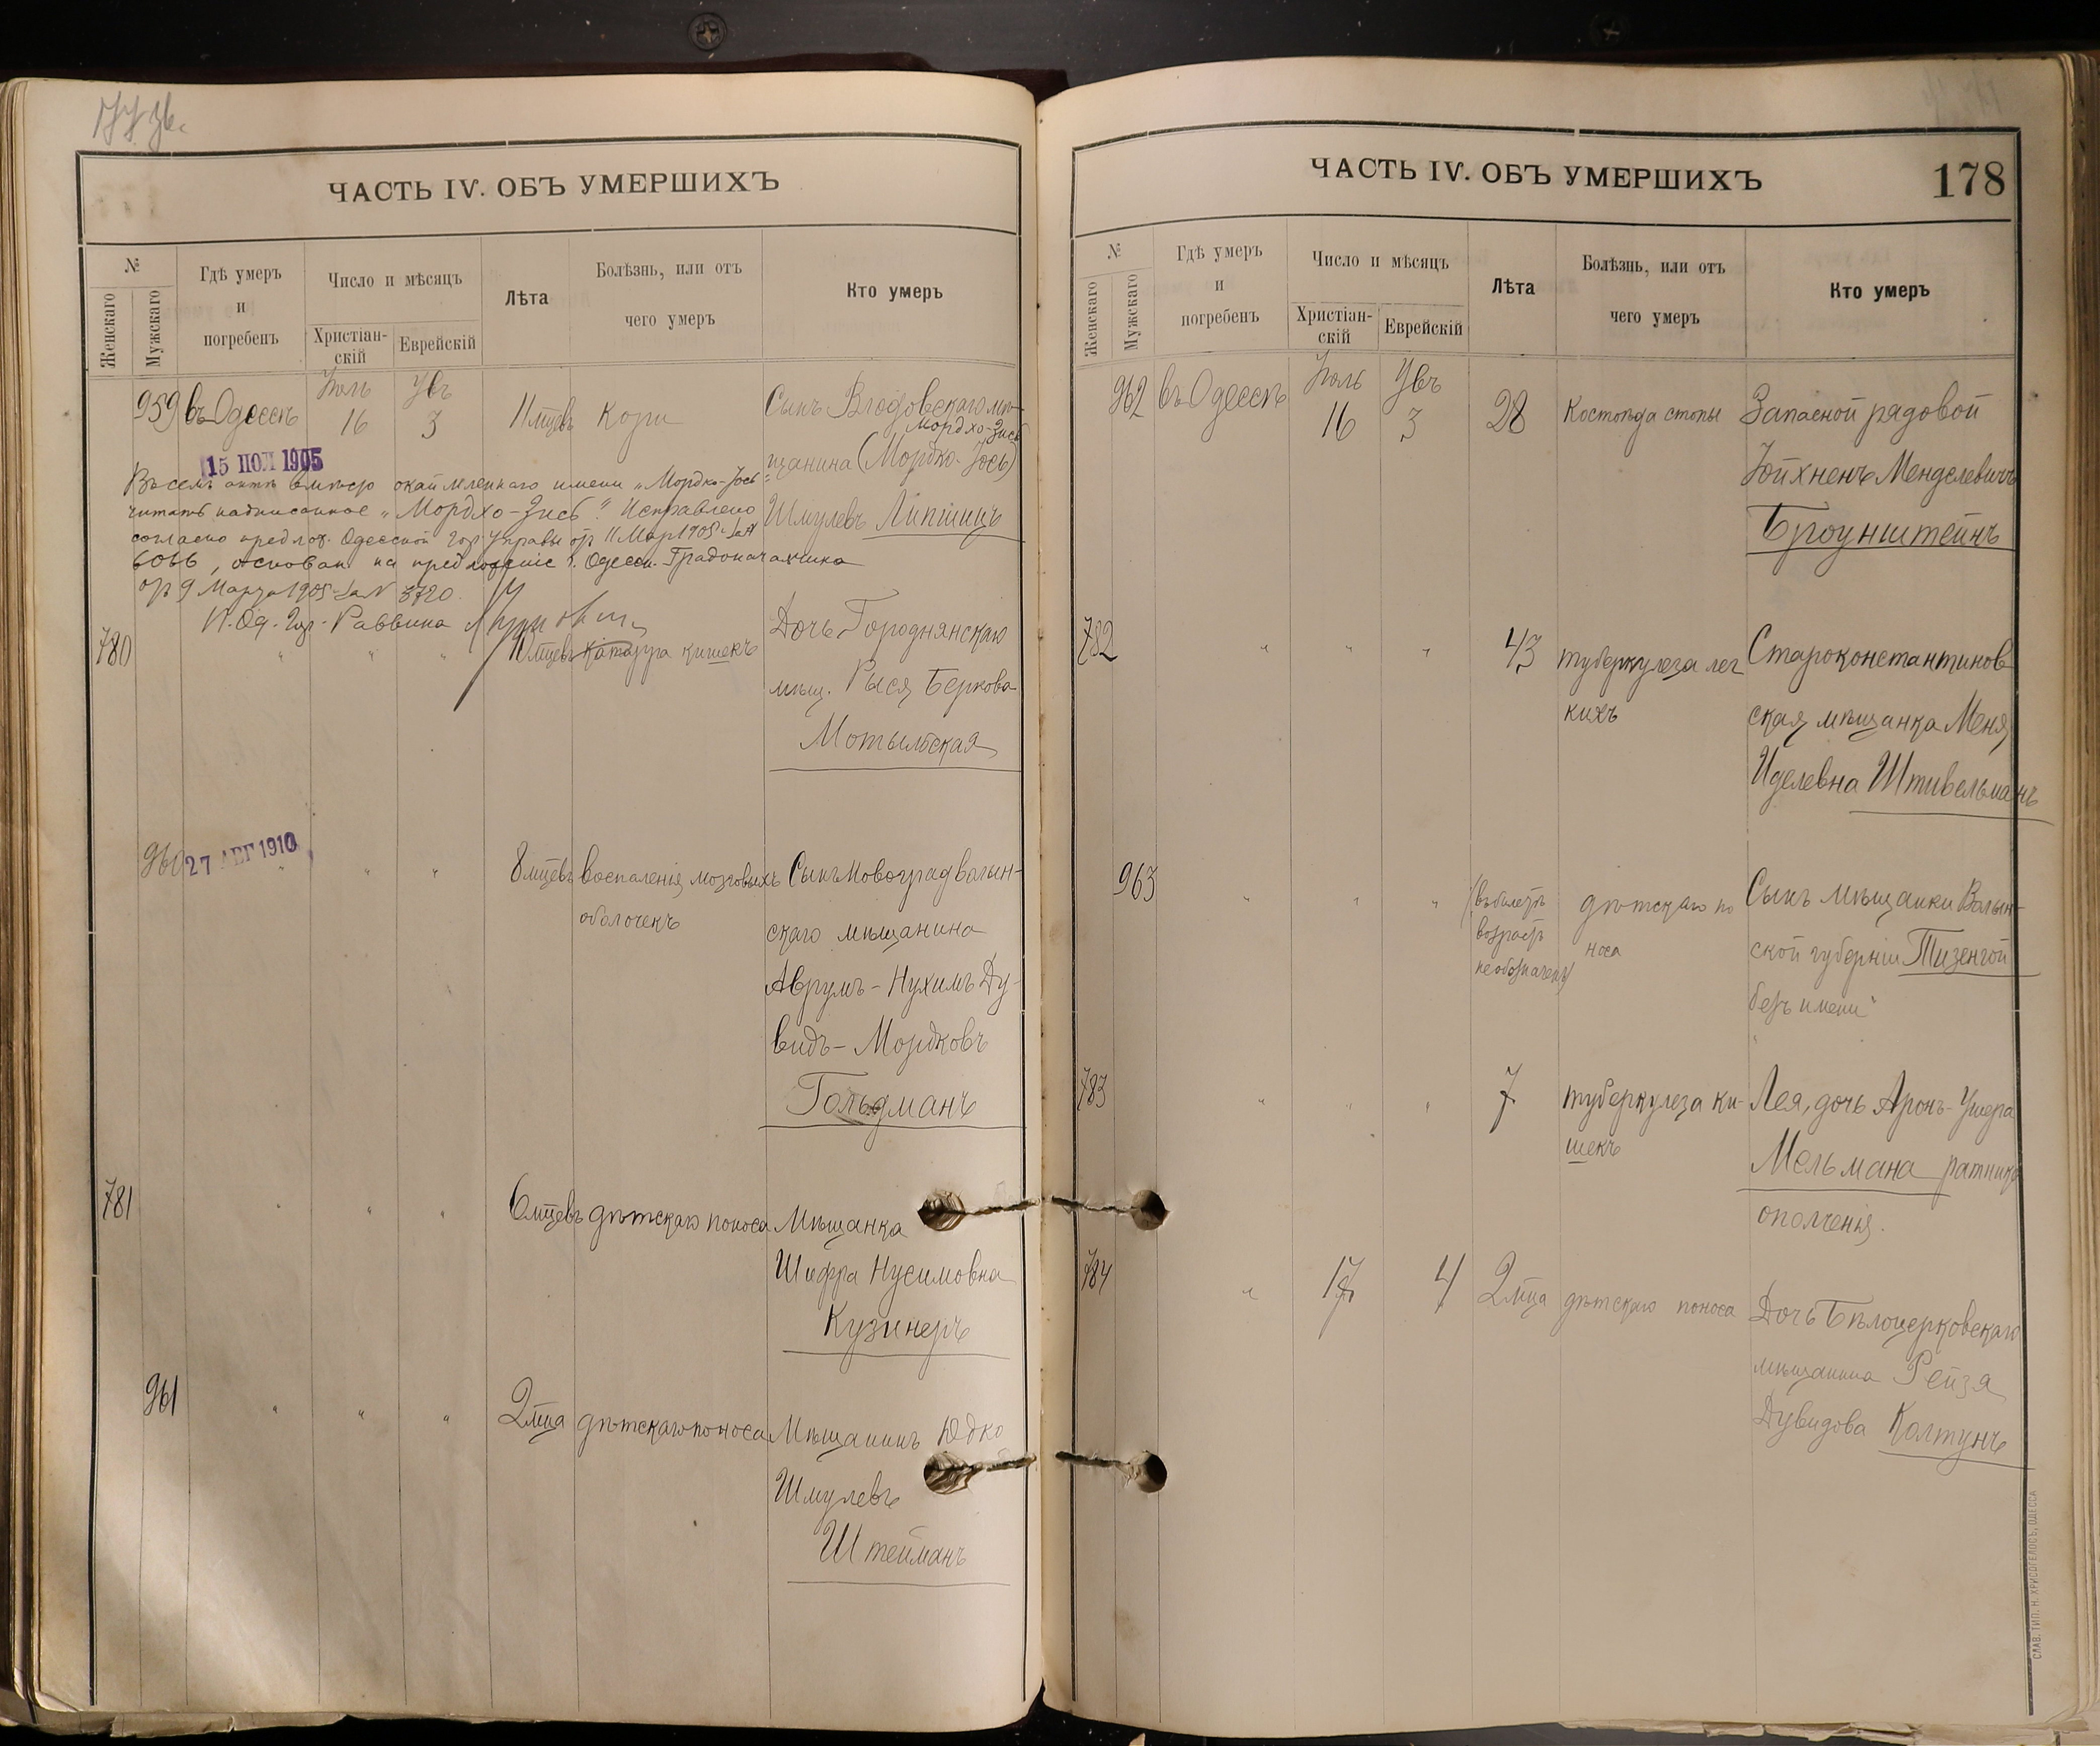 177 зв.
ЧАСТЬ IV. ОБЪ УМЕРШИХЪ
№
Женскаго
Мужскаго
Гдѣ умеръ
и
погребенъ
Число и мѣсяцъ
Христіан-
скій
Еврейскій
Лѣта
Болѣзнь, или отъ
чего умеръ
Кто умеръ
959 въ Одессѣ Іюль 16 Увъ 3 11 мцевъ Кори Сынъ Влодовскаго мѣ-
Мордхо-Зись
щанина (Мордко-Іось)
Шмулевъ Липшицъ
15 ИЮЛ 1905
Въ семъ актѣ вмѣсто окаймленнаго имени „Мордко-Іось"
читать надписанное „Мордхо-Зись". Исправлено
согласно предлож. Одесской Гор. Управы отъ 11 Мар 1905 г. за №
6066, основан на предложеніе г. Одесск. Градоначальника
отъ 9 Марта 1905 г. за № 3720.
И. Од. Гор. Раввина
780 " " " 10 мцевъ Катарра кишекъ Дочь Городнянскаго
мѣщ. Рыся Беркова
Мотыльская
960 27 АВГ 1910 " " " 8 мцевъ воспаленія мозговыхъ Сынъ Новоградволын-
оболочекъ
скаго мѣщанина
Аврумъ-Нухимъ Ду-
видъ-Мордковъ
Гольдманъ
781 " " " 6 мцевъ дѣтскаго поноса Мѣщанка
Шифра Нусимовна
Кузинеръ
961 " " " 2 мца дѣтскаго поноса Мѣщанинъ Юдко
Шмулевъ
Штейманъ
ЧАСТЬ IV. ОБЪ УМЕРШИХЪ
178
№
Женскаго
Мужскаго
Гдѣ умеръ
и
погребенъ
Число и мѣсяцъ
Христіан-
скій
Еврейскій
Лѣта
Болѣзнь, или отъ
чего умеръ
Кто умеръ
962 въ Одессѣ Іюль 16 Увъ 3 28 Костоѣда стопы Запасной рядовой
Іойхненъ Менделевичъ
Броунштейнъ
782 " " " 43 туберкулеза лег Староконстантинов
кихъ
ская мѣщанка Меня
Иделевна Штивельманъ
963 " " " (въ билетѣ дѣтскаго по Сынъ мѣщанки Волын-
возрастъ носа ской губерніи Тизенгой
необозначенъ)
безъ имени"
783 " " " 7 туберкулеза ки- Лея, дочь Аронъ-Ушера
шекъ
Мельмана ратника
ополченія.
784 " 17 4 2 мца дѣтскаго поноса Дочь Бѣлоцерковскаго
мѣщанина Рейзя
Дувидова Колтунъ
СЛАВ. ТИП. Н. ХРИСОГЕЛОСЪ, ОДЕССА